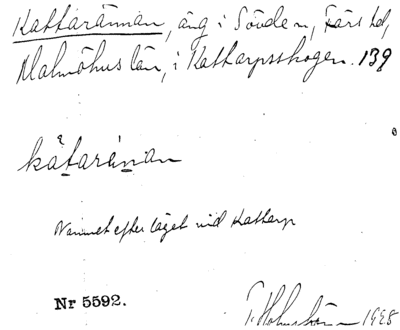 Kattarännan, äng i Sövde n, Färs hd,
Malmöhus län, i Kattarpsskogen. 139
kȧtarȧnan
Namnet efter läget vid Kattarp
Nr 5592.
1928